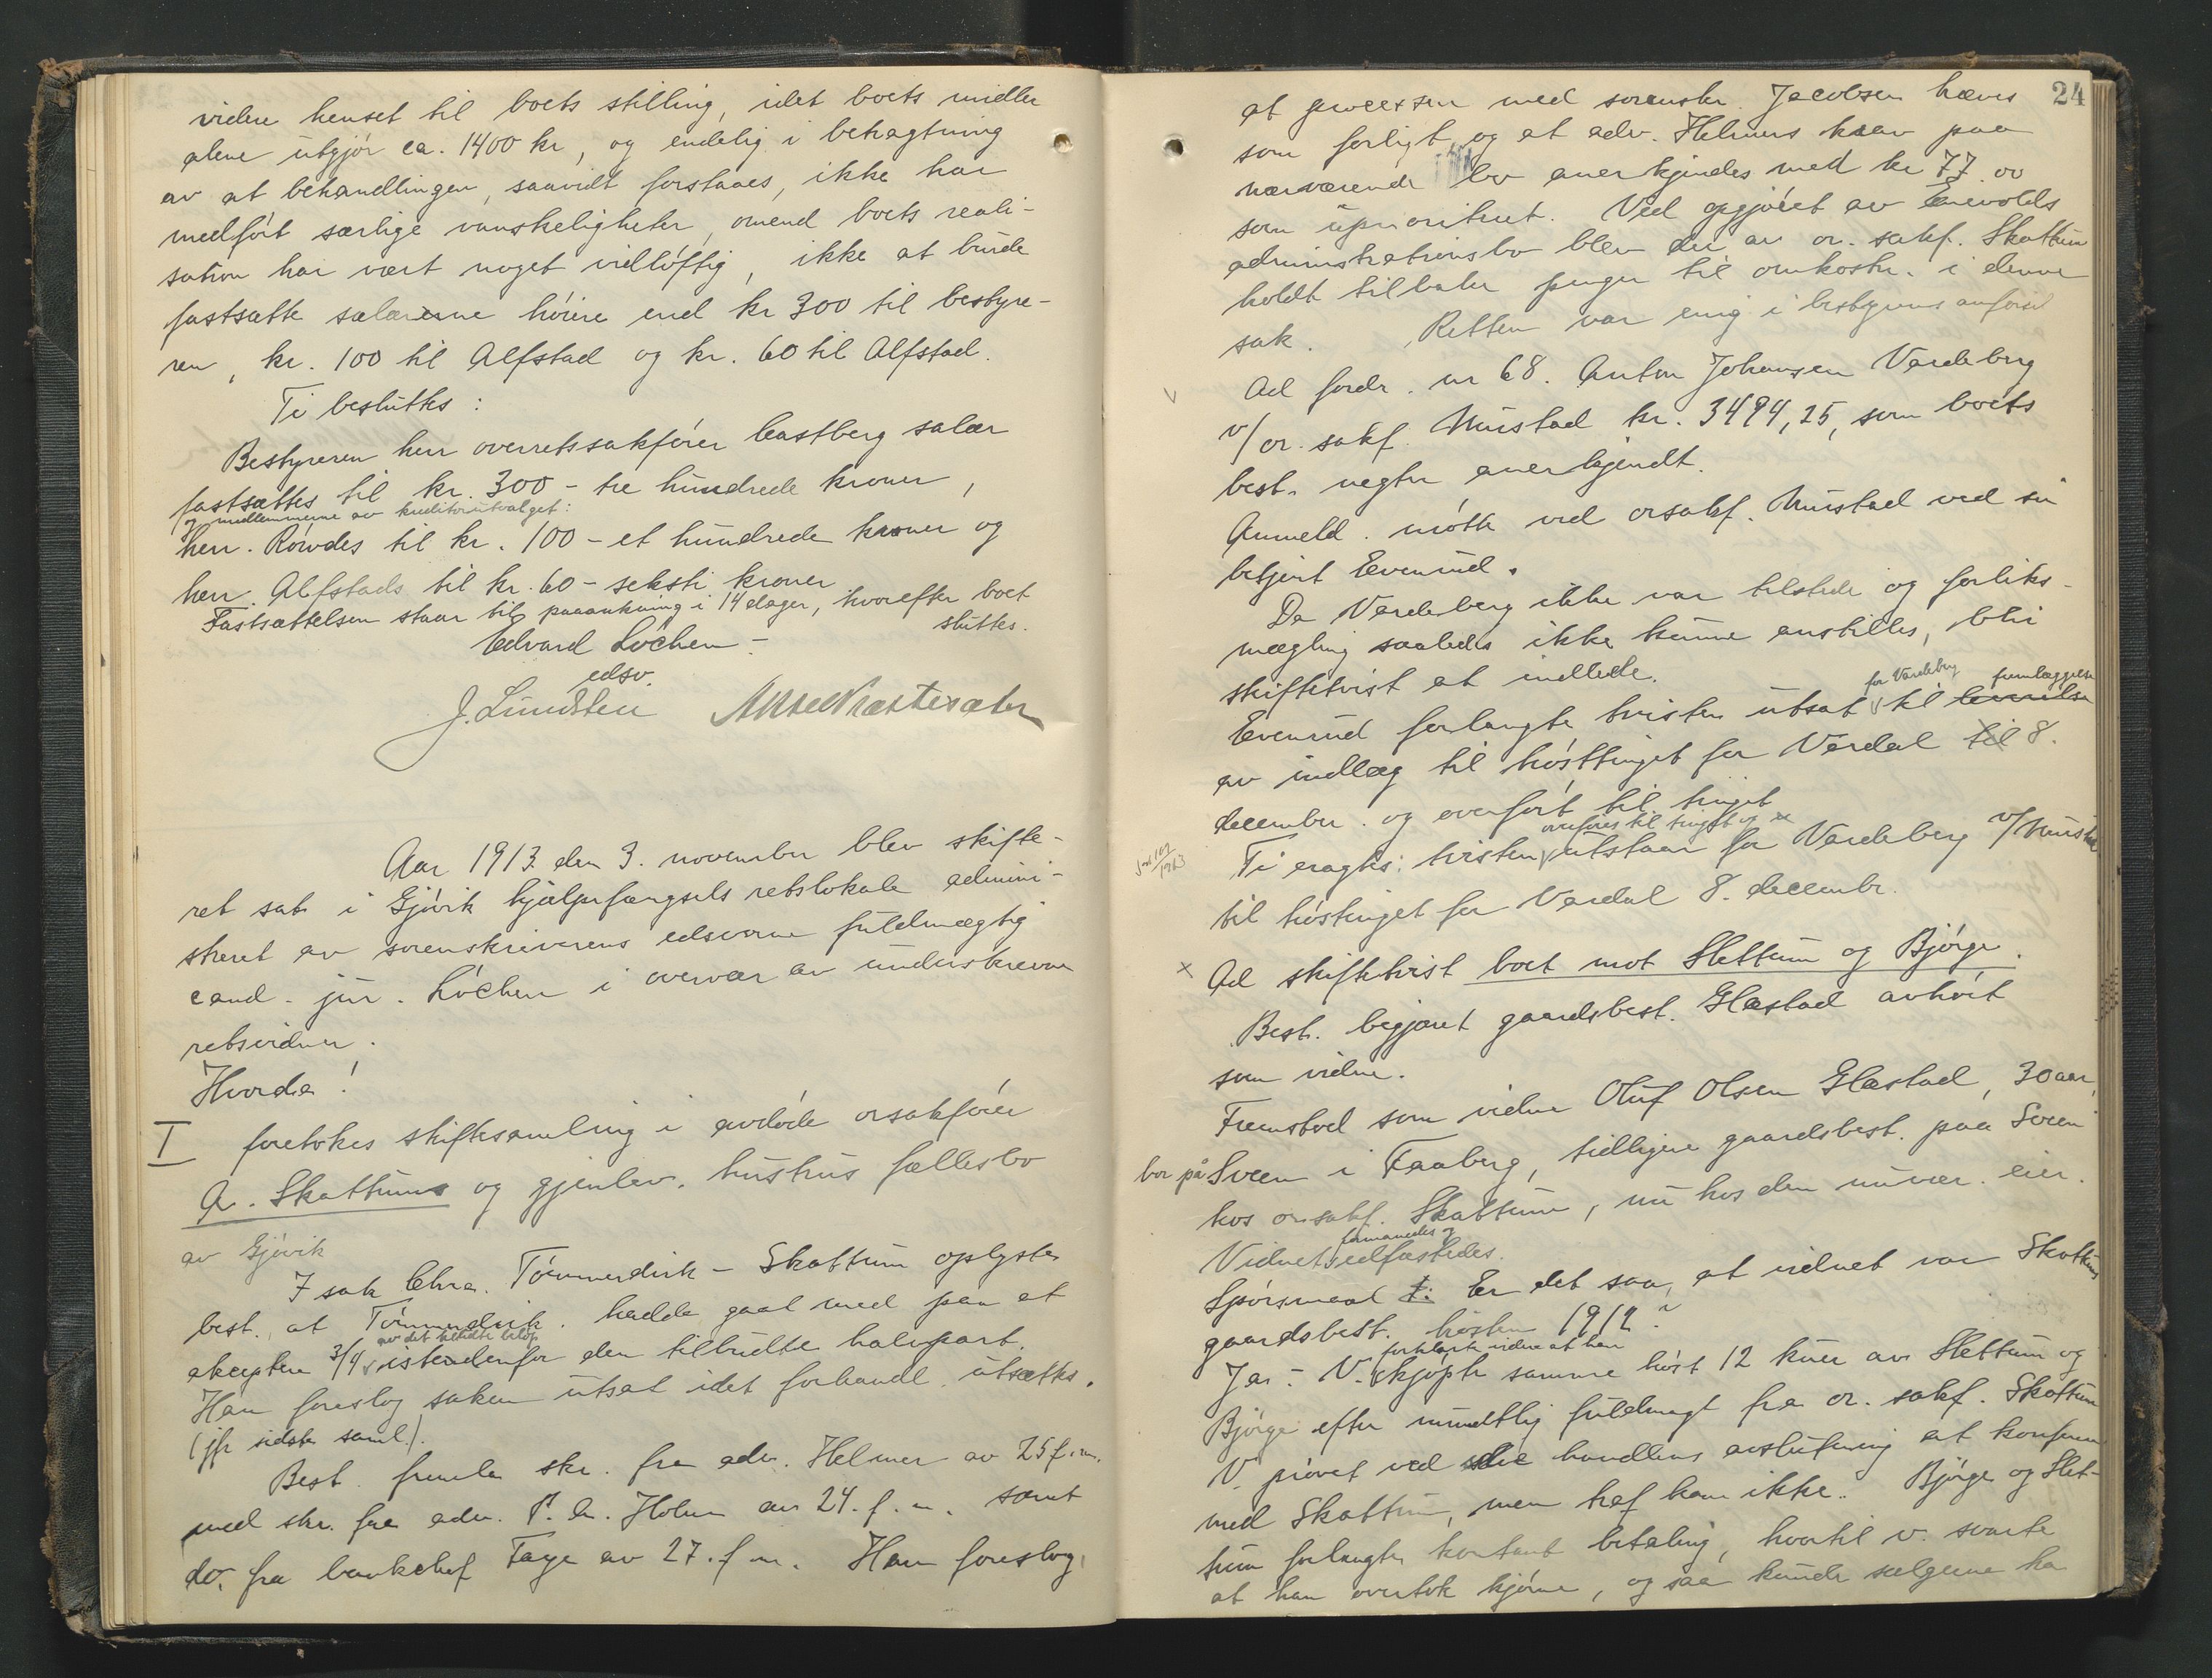 videre henset til boets stilling, idet boets midler
alene utgjør ca. 1400 kr, og endelig i betragtning
av at behandlingen, saavidt forstaaes, ikke har
medført særlige vanskeligheter, omend boets reali-
sation har vært noget vidløftig, ikke at burde
fastsætte salærerne høiere end kr 300 til bestyre-
ren, kr. 100 til Alfstad og kr. 60 til Alfstad.
Ti besluttes:
Bestyreren herr overretssakfører Castberg salær
fastsættes til kr. 300 - tre hundrede kroner,
og medlemmerne av kreditorutvalget:
herr. Røwdes til kr. 100 - et hundrede kroner og
herr. Alfstads til kr. 60 - seksti kroner
Fastsættelsen staar til paaankning i 14 dager, hvorefter boet
sluttes.
Edvard Løchen -
edsv.
J. Lundsten
Aar 1913 den 3. november blev skifte-
ret sat i Gjøvik hjælpefængsels retslokale admini-
streret av sorenskriverens edsvorne fuldmægtig
cand. jur. Løchen i overvær av underskrevne
retsvidner.
Hvorda!
I foretokes skiftesamling i avdøde orsakfører
A. Skattums og gjenlev. hustrus fællesbo
av Gjøvik
I sak Chra. Tømmerdirk - Skattum oplyste
best. at Tømmerdirk. hadde gaat med paa at
av det tilbudte beløp
akceptere 3/4 istedenfor den tilbudte halvpart.
Han foreslog saken utsat idet forhandl. utsættes.
(jfr sidste saml.).
Best. freml. skr. fra adv. Helmer av 25 f.m.
med skr. fra adv. P. A. Holm av 24. f. m. samt
do. fra bankchef Faye av 27. f m. Han foreslog,
24
at processen med sorenskr. Jacobsen hæves
som forligt, og at adv. Helmers krav paa
nærværende bo anerkjendes med kr 77.00
som uprioritert. Ved opgjøret av Enevolds
administrationsbo blev der av or. sakf. Skattum
holdt tilbake penger til omkostn. i denne
sak. Retten var enig i bestyrerens anførsel
Ad fordr. nr 68. Anton Johansen Vardeberg
v/ or. sakf. Mustad kr. 3494,25, som boets
best. negter anerkjendt.
Anmeld. møtte ved orsakf. Mustad ved sin
betjent Evenrud.
Da Vardeberg ikke var tilstede og forliks-
mægling saaledes ikke kunne anstilles, blir
skiftetvist at indlede.
for Vardeberg fremlæggelse
Evenrud forlangte tvisten utsat til
av indlæg til høsttinget for Vardal til 8.
december. og overført til tinget
overføres til tinget og
Ti eragtes: tvisten utstaar for Vardeberg v/ Mustad
til høstinget for Vardal 8. decembr.
Ad skiftetvist boet mot Slettum og Bjørge.
Best. begjæret gaardsbest. Glæstad avhørt
som vidne.
Fremstod som vidne Oluf Olsen Glæstad, 30 aar,
bor på Sveen i Faaberg, tidligere gaardsbest. paa Sveen
hos orsakf. Skattum, nu hos den nuvær. eier.
formanedes og
Vidnet edfæstedes.
Spørsmaal 1: Er det saa, at vidnet var Skattums
gaardsbest. høsten 1912?
forklarte videre at han
Ja. - V. kjøpte samme høst 12 kuer av Slettum og
Bjørge efter mundtlig fuldmagt fra or. sakf. Skattum
V. prøvet ved handlens avslutning at konferere
med Skattum, men traf ham ikke. Bjørge og Slet-
tum forlangte kontant betaling, hvortil v. svarte
at han overtok kjørne, og saa kunde sælgerne ha